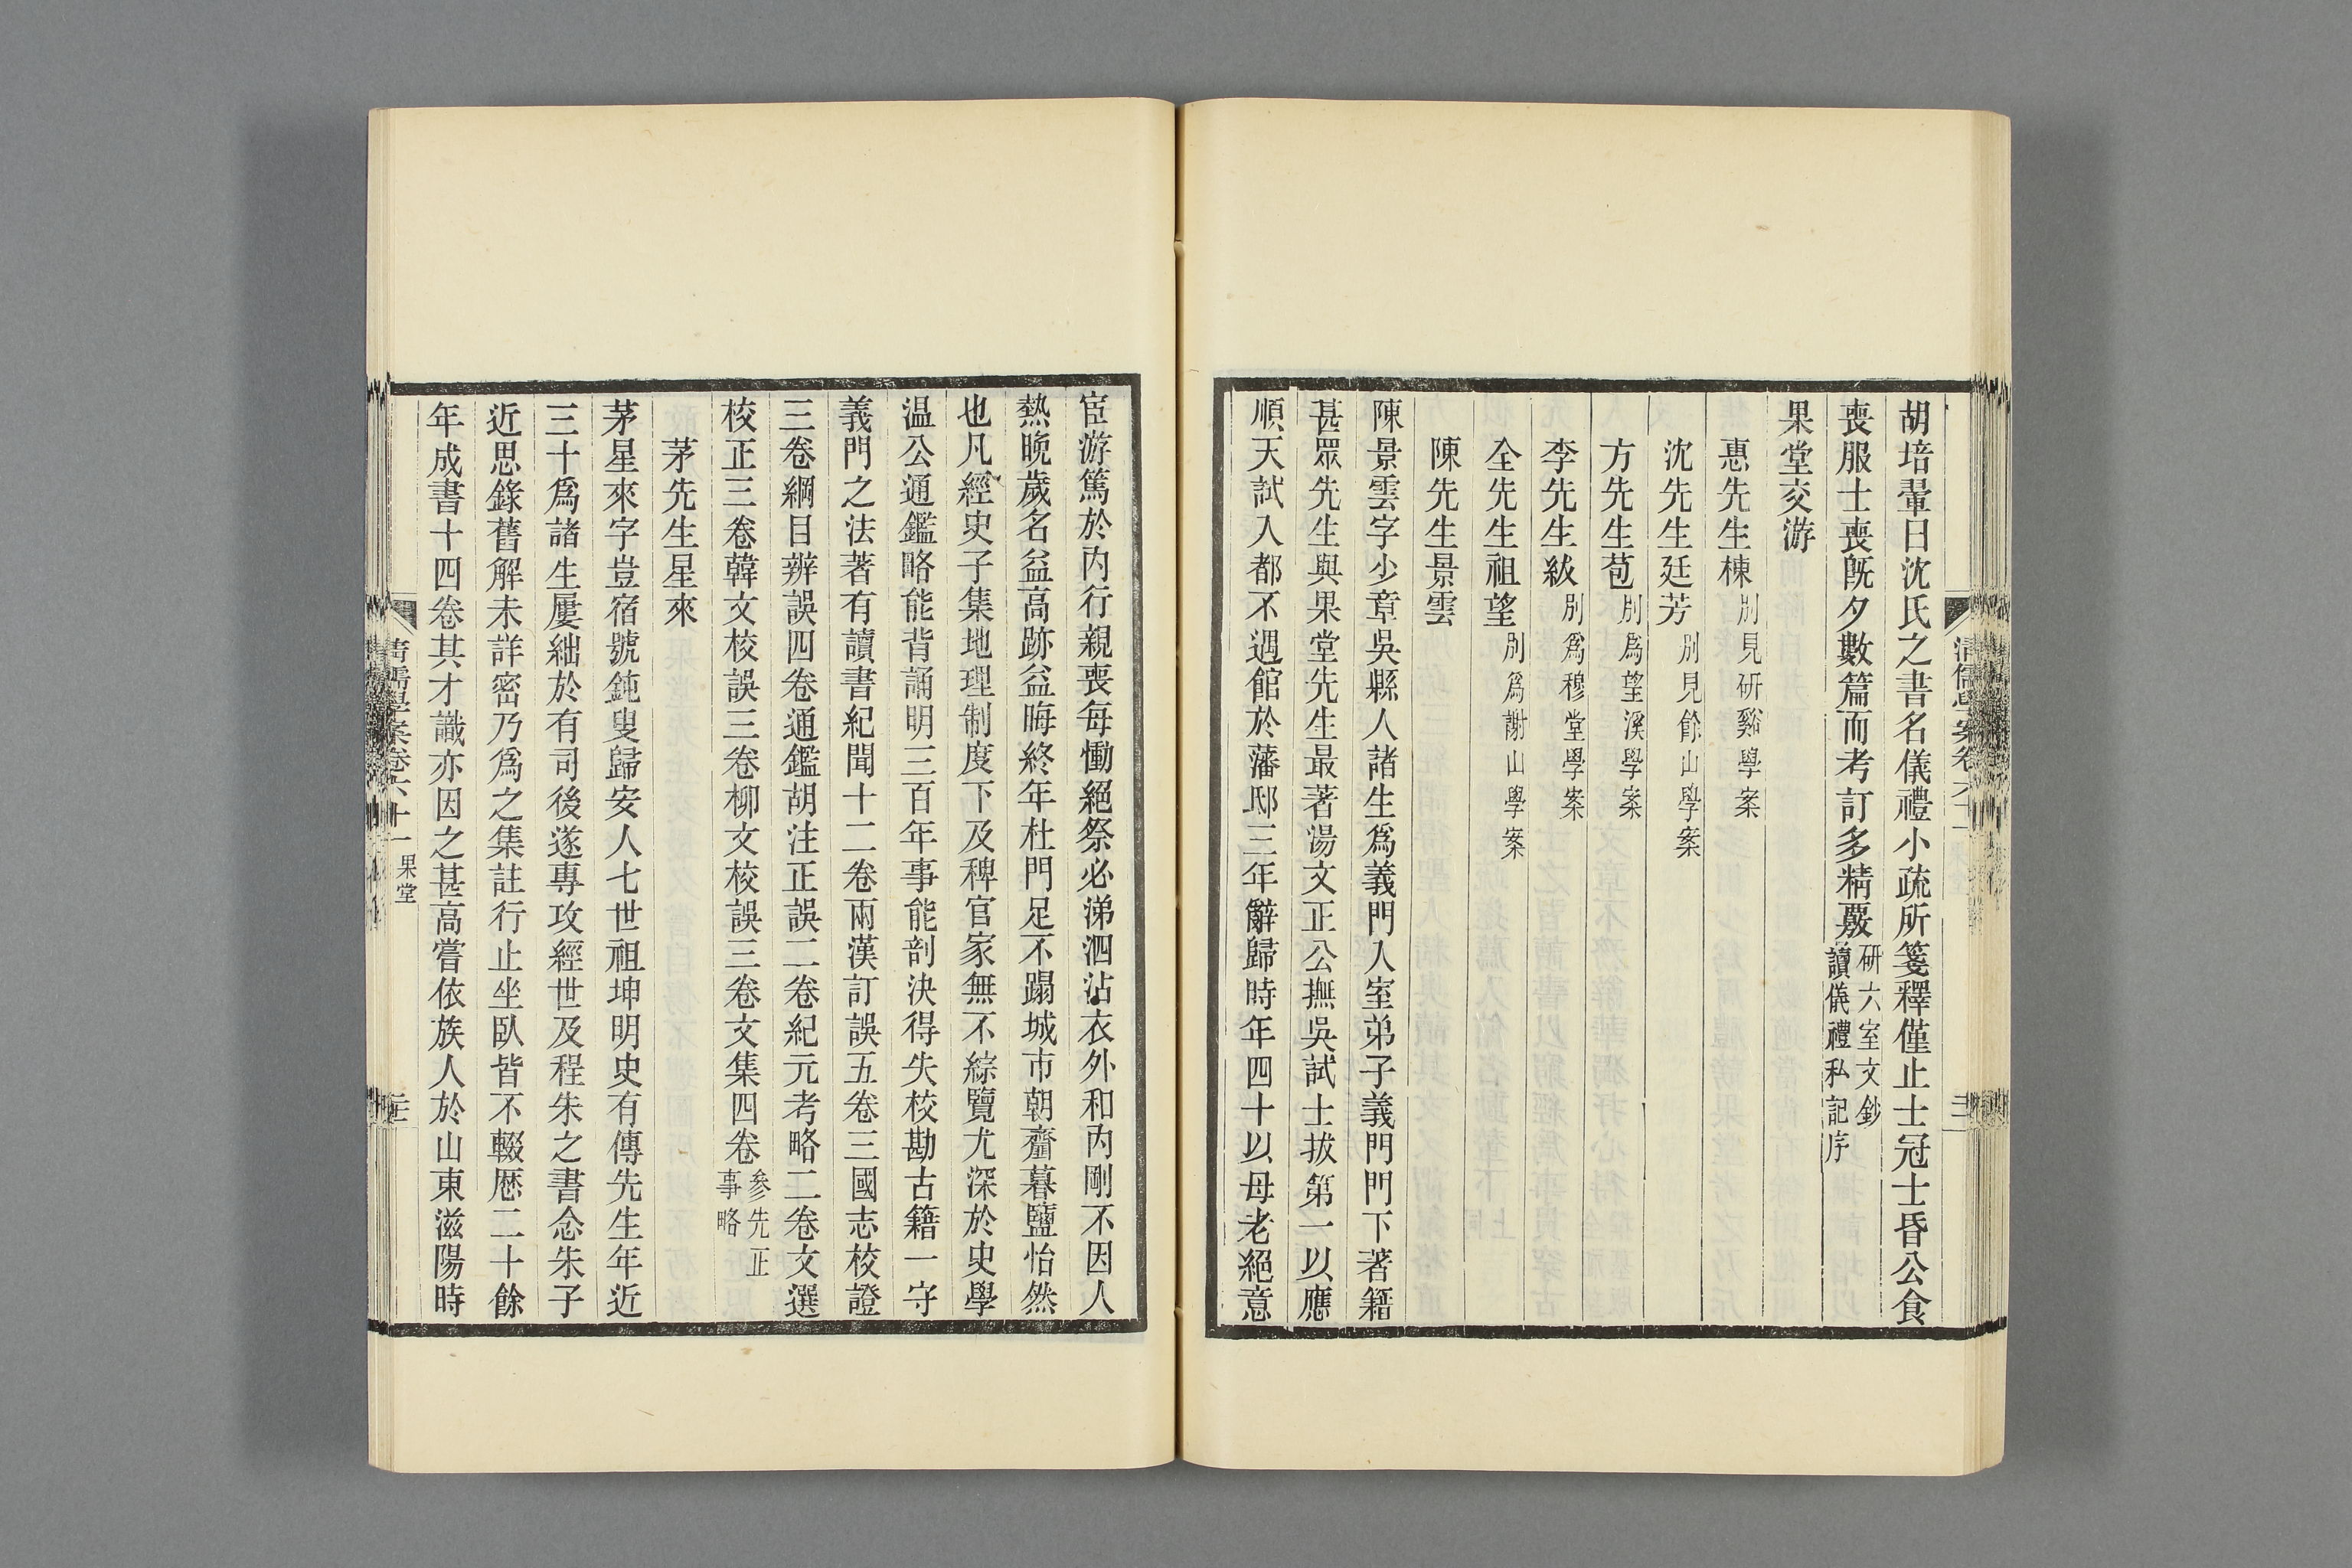 胡培翬曰沈氏之書名儀禮小疏所箋釋僅止士冠士昏公食
喪服士喪旣夕數篇而考訂多精覈研六室文鈔讀儀禮私記序
果堂交游
惠先生棟別見研谿學案
沈先生廷芳別見餘山學案
方先生苞別爲望溪學案
李先生紱別爲穆堂學案
全先生祖望別爲謝山學案
陳先生景雲
陳景雲字少章吳縣人諸生爲義門入室弟子義門門下著籍
甚眾先生與果堂先生最著湯文正公撫吳試士拔第一以應
順天試入都不遇館於藩邸三年辭歸時年四十以母老絕意
宦游篤於內行親喪每慟絕祭必涕泗沾衣外和內剛不因人
熱晩歲名益高跡益晦終年杜門足不蹋城市朝齏暮鹽怡然
也凡經史子集地理制度下及稗官家無不綜覽尤深於史學
温公通鑑略能背誦明三百年事能剖決得失校勘古籍一守
義門之法著有讀書紀聞十二卷兩漢訂誤五卷三國志校證
三卷綱目辨誤四卷通鑑胡注正誤二卷紀元考略二卷文選
校正三卷韓文校誤三卷柳文校誤三卷文集四卷參先正事略
茅先生星來
茅星來字豈宿號鈍叟歸安人七世祖坤明史有傳先生年近
三十爲諸生屢絀於有司後遂專攻經世及程朱之書念朱子
近思錄舊解未詳密乃爲之集註行止坐臥皆不輟厯二十餘
年成書十四卷其才識亦因之甚高嘗依族人於山東滋陽時
清儒學案卷六十一 果堂